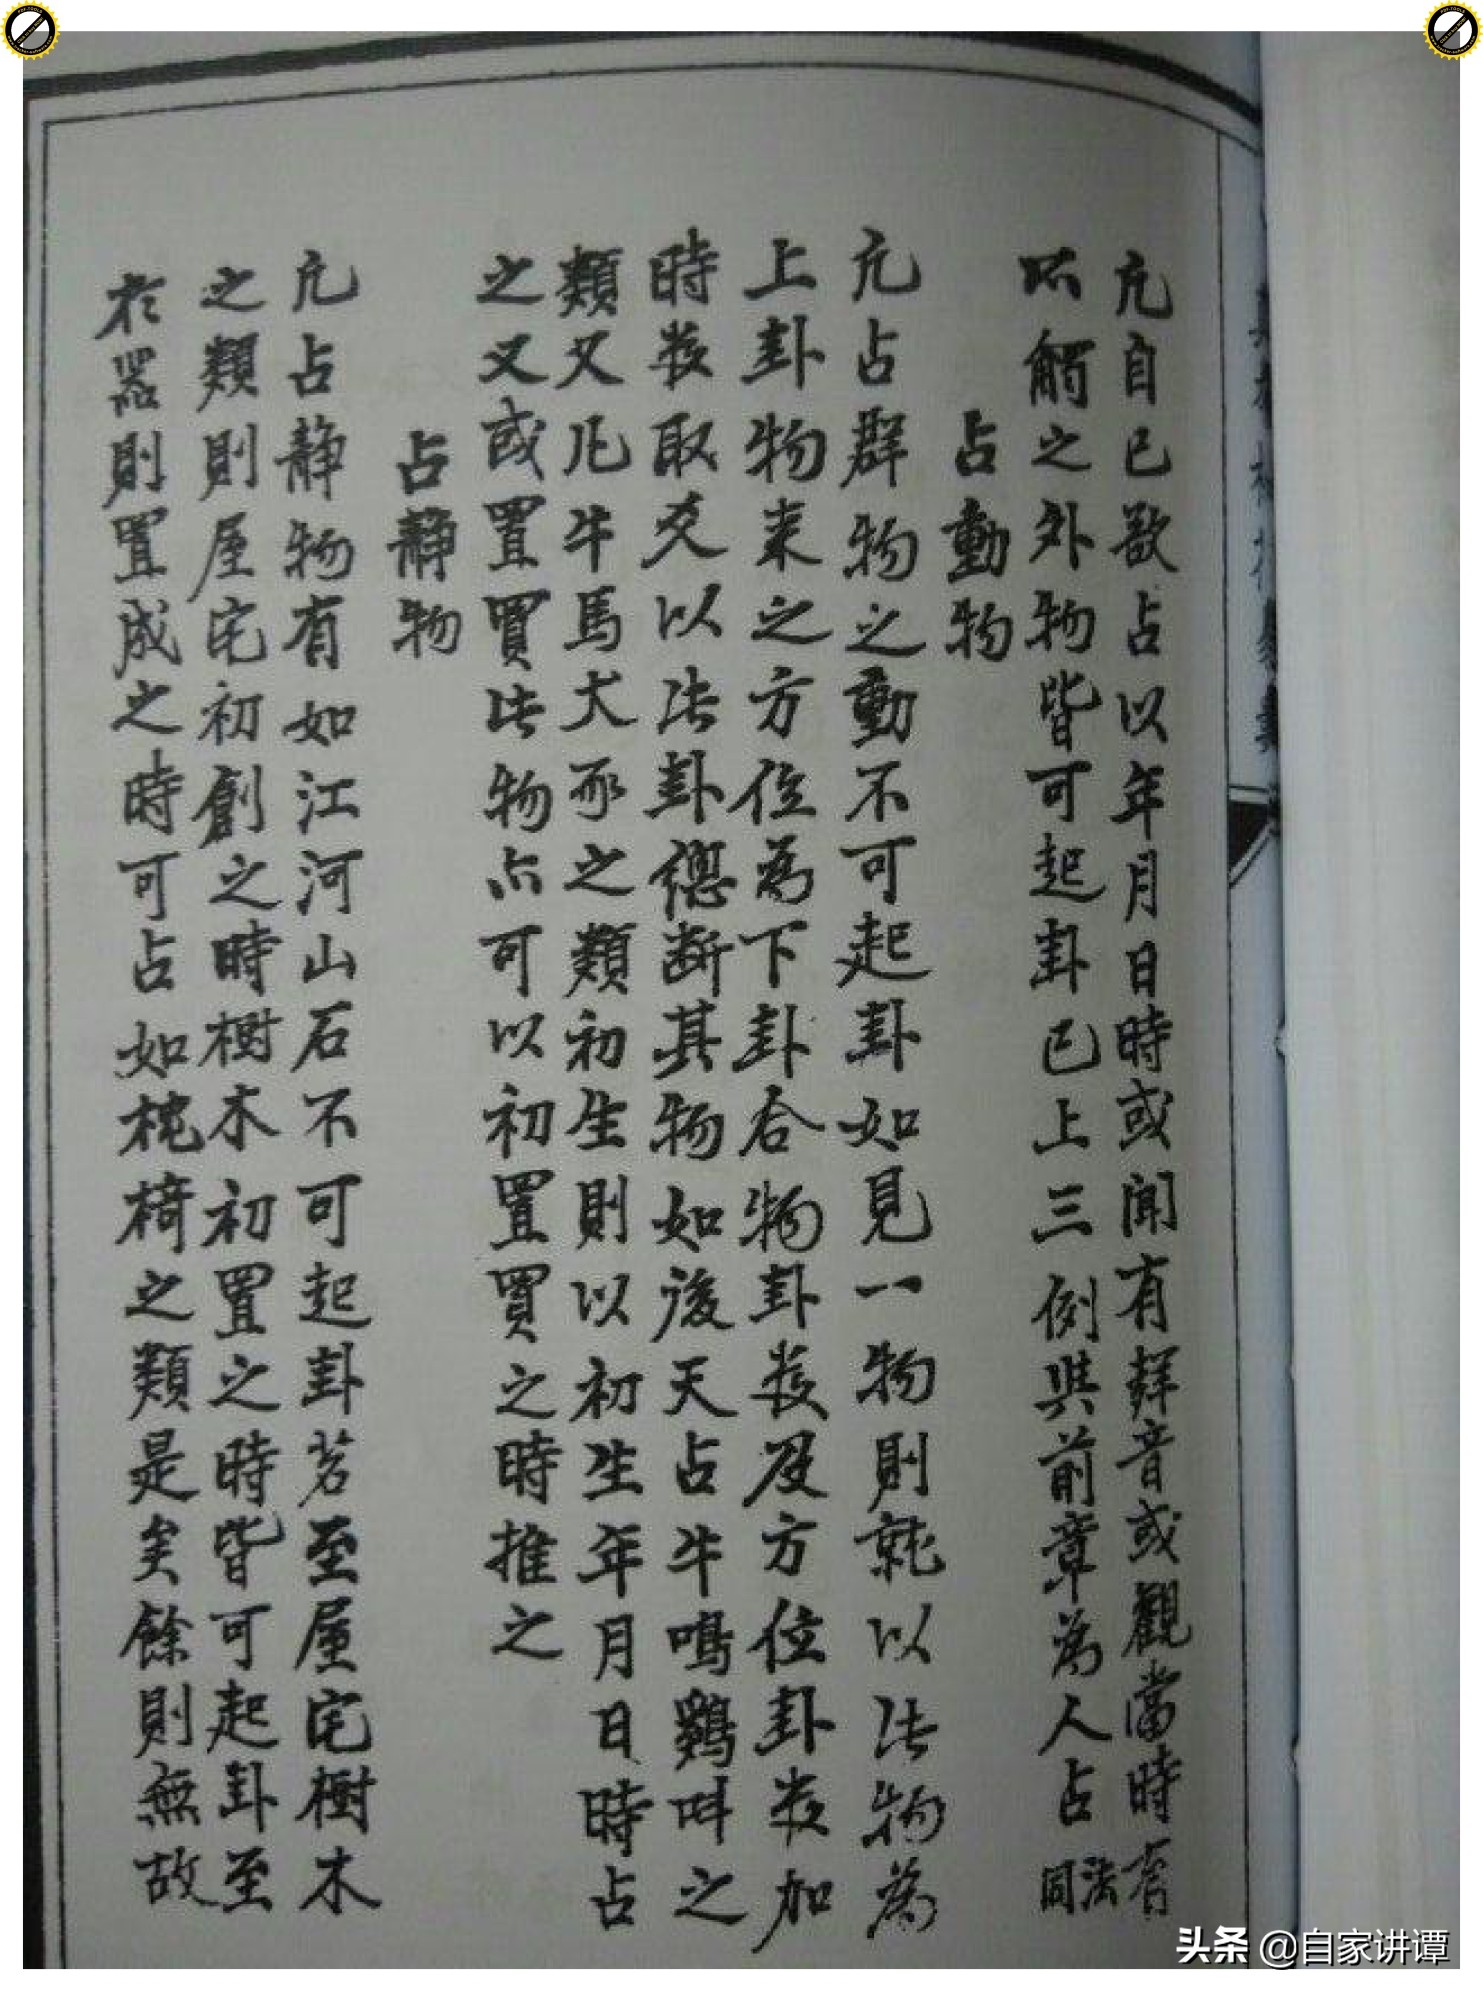 凢自己欲占以年月日時或聞有聲音或觀當時有
所觸之外物皆可起卦已上三例與前章為人占法同
占動物
凢占群物之動不可起卦如見一物則就以此物為
上卦物来之方位為下卦合物卦数及方位卦数加
時数取爻以此卦總断其物如後天占牛鳴鷄叫之
類又凡牛馬犬豕之類初生則以初生年月日時占
之又或置買此物亦可以初置買之時推之
占静物
凢占静物有如江河山石不可起卦若至屋宅樹木
之類則屋宅初創之時樹木初置之時皆可起卦至
於器則置成之時可占如枕椅之類是矣餘則無故
头条 @自家讲谭